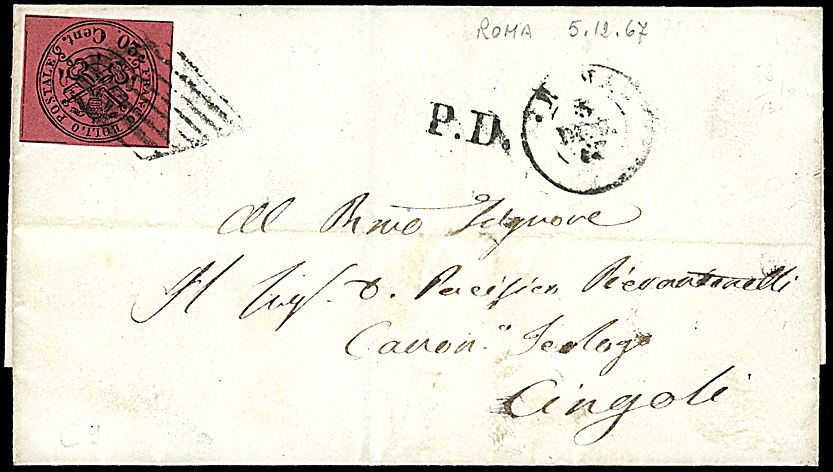 ROMA 5.12.67
FRANCO BOLLO POSTALE
20 Cent.
P.D.
5
Al Rmo Signore
Il Sig. D. Pacifico Pierantonelli
Canon.° Teologo
Cingoli